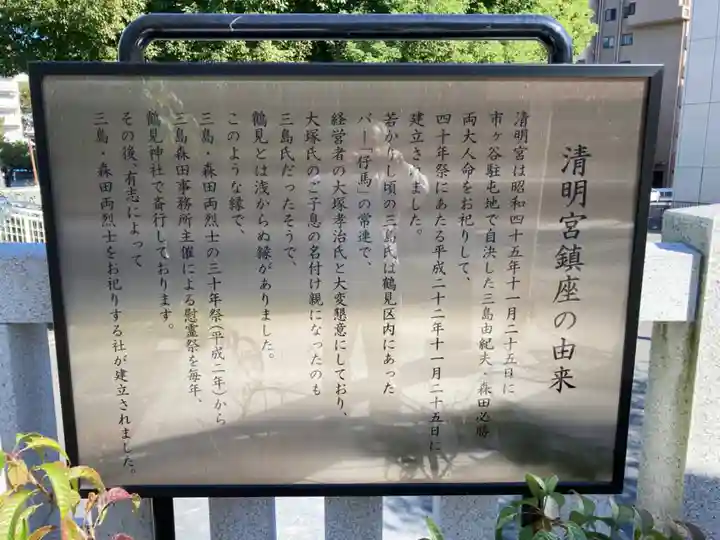 清明宮鎮座の由来
清明宮は昭和四十五年十一月二十五日に
市ヶ谷駐屯地で自決した三島由紀夫・森田必勝
両大人命をお祀りして、
四十年祭にあたる平成二十二年十一月二十五日に
建立されました。
若かりし頃の三島氏は鶴見区内にあった
バー「仔馬」の常連で、
経営者の大塚孝治氏と大変懇意にしており、
大塚氏のご子息の名付け親になったのも
三島氏だったそうで、
鶴見とは浅からぬ縁がありました。
このような縁で、
三島・森田両烈士の三十年祭(平成二年)から
三島森田事務所主催による慰霊祭を毎年、
鶴見神社で斎行しております。
その後、有志によって
三島・森田両烈士をお祀りする社が建立されました。